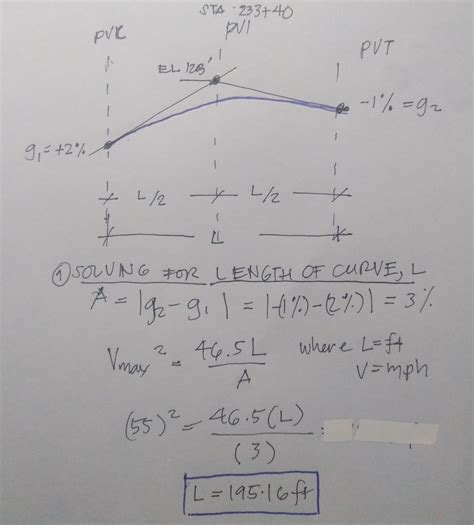 STA. 233+40
PVC PVI PVT
EL 123'
g₁ = +2%
-1% = g₂
L/2 L/2
L
① SOLVING FOR LENGTH OF CURVE, L
A = |g₂ - g₁| = |-(1%) - (2%)| = 3%
Vmax² = 46.5L / A where L = ft
V = mph
(55)² = 46.5(L) / (3) =
L = 195.16 ft